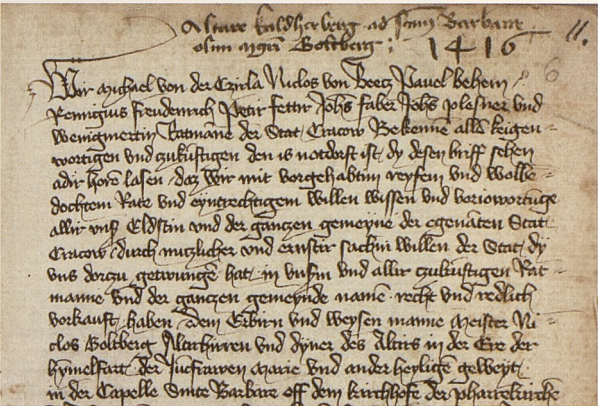 Altare kuldherberg ad sanctam Barbaram
olim magistri Goltberg 1416 11.
6
Wir Michael von der Czirla Niclos von Beetz Pauel behem
Remigius freudenrich Petir fettir Johs faber Johs plesner vnd
wenigmertin Ratmane der Stat Cracow Bekenne alle kegen-
wortigen vnd zukunftigen den is notdorft ist, dy desen briff sehen
adir horen lasen, daz wir mit vorgehabtim reyfem vnd wolbe-
dochtem Rate vnd eyntrechtigem willen wissen vnd voriowortunge
allir vnsir Eldstin vnd der gantzen gemeyne der egenaten Stat
Cracow durch nutzlicher vnd ernstir sachin willen der Stat, dy
vns dorczu getwungen hat, in vnsim vnd allir zukunftigen Rat-
manne vnd der gantzen gemeynde namen recht vnd redlich
vorkauft haben dem Erbirn vnd weysen manne Meister Ni-
clos Goltberg Altarhirren vnd dyner des Altirs in der Ere der
hymelfart der Juncfrawen Marie vnd ander heyligen geweyt
in der Capelle Sinte Barbare off dem kirchhofe der pfarrekirchen